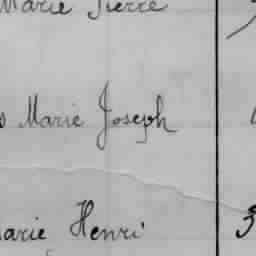 Marie Pierre
s Marie Joseph
arie Henri 3